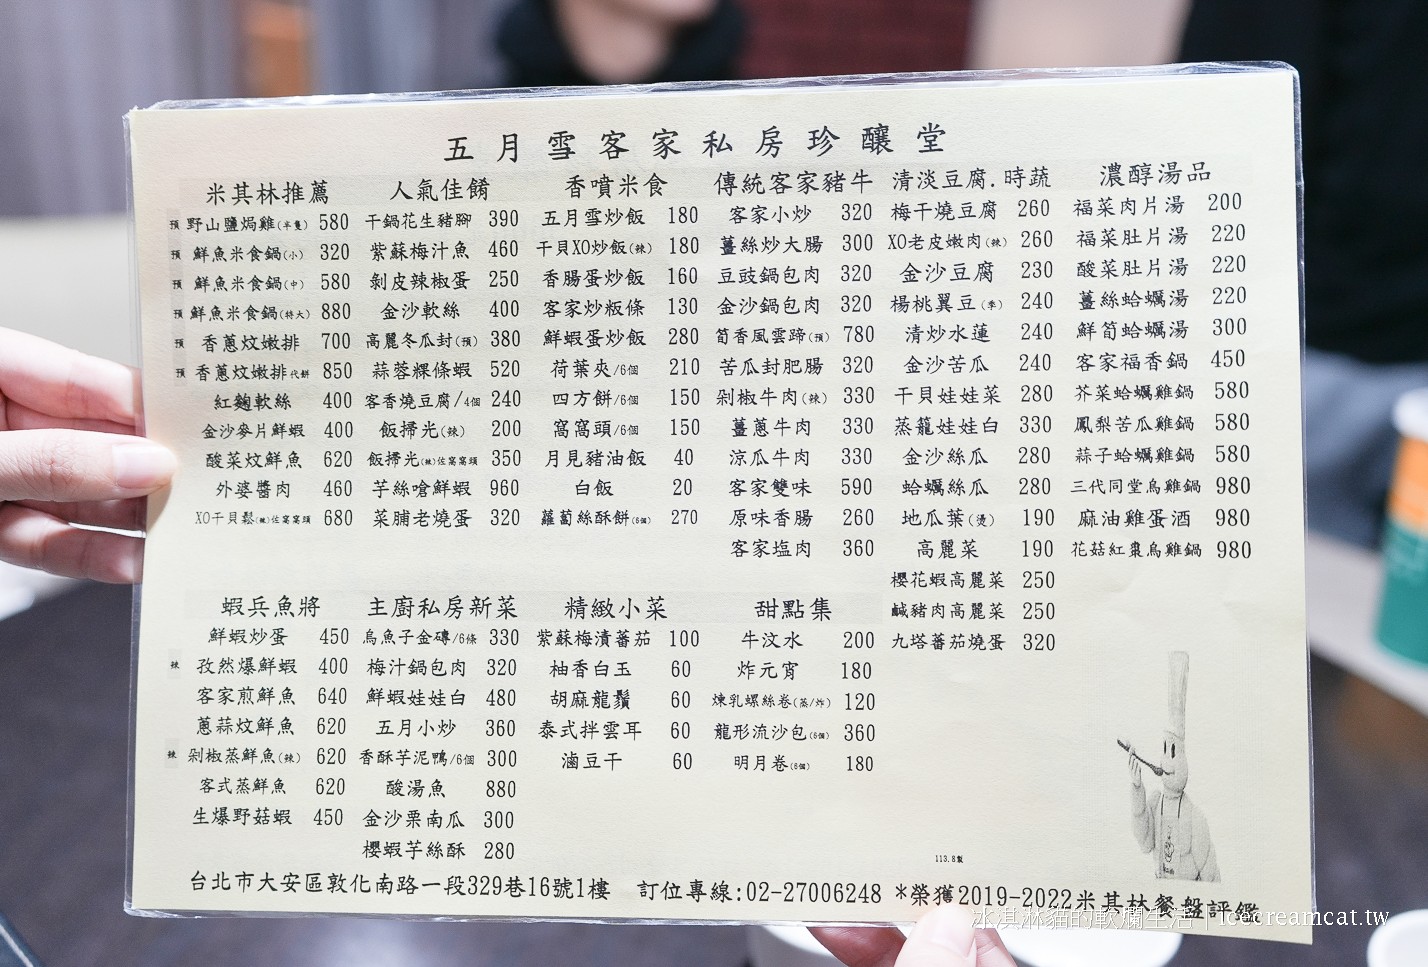 五月雪客家私房珍釀堂
米其林推薦
預 野山鹽焗雞(半隻) 580
預 鮮魚米食鍋(小) 320
預 鮮魚米食鍋(中) 580
預 鮮魚米食鍋(特大) 880
預 香蔥炆嫩排 700
預 香蔥炆嫩排代餅 850
紅麴軟絲 400
金沙麥片鮮蝦 400
酸菜炆鮮魚 620
外婆醬肉 460
XO干貝鬆(辣)佐窩窩頭 680
人氣佳餚
干鍋花生豬腳 390
紫蘇梅汁魚 460
剝皮辣椒蛋 250
金沙軟絲 400
高麗冬瓜封(預) 380
蒜蓉粿條蝦 520
客香燒豆腐/4個 240
飯掃光(辣) 200
飯掃光(辣)佐窩窩頭 350
芋絲嗆鮮蝦 960
菜脯老燒蛋 320
香噴米食
五月雪炒飯 180
干貝XO炒飯(辣) 180
香腸蛋炒飯 160
客家炒粄條 130
鮮蝦蛋炒飯 280
荷葉夾/6個 210
四方餅/6個 150
窩窩頭/6個 150
月見豬油飯 40
白飯 20
蘿蔔絲酥餅(6個) 270
傳統客家豬牛
客家小炒 320
薑絲炒大腸 300
豆豉鍋包肉 320
金沙鍋包肉 320
筍香風雲蹄(預) 780
苦瓜封肥腸 320
剁椒牛肉(辣) 330
薑蔥牛肉 330
涼瓜牛肉 330
客家雙味 590
原味香腸 260
客家塩肉 360
清淡豆腐.時蔬
梅干燒豆腐 260
XO老皮嫩肉(辣) 260
金沙豆腐 230
楊桃翼豆(季) 240
清炒水蓮 240
金沙苦瓜 240
干貝娃娃菜 280
蒸籠娃娃白 330
金沙絲瓜 280
蛤蠣絲瓜 280
地瓜葉(燙) 190
高麗菜 190
櫻花蝦高麗菜 250
鹹豬肉高麗菜 250
九塔蕃茄燒蛋 320
濃醇湯品
福菜肉片湯 200
福菜肚片湯 220
酸菜肚片湯 220
薑絲蛤蠣湯 220
鮮筍蛤蠣湯 300
客家福香鍋 450
芥菜蛤蠣雞鍋 580
鳳梨苦瓜雞鍋 580
蒜子蛤蠣雞鍋 580
三代同堂烏雞鍋 980
麻油雞蛋酒 980
花菇紅棗烏雞鍋 980
蝦兵魚將
鮮蝦炒蛋 450
辣 孜然爆鮮蝦 400
客家煎鮮魚 640
蔥蒜炆鮮魚 620
辣 剁椒蒸鮮魚(辣) 620
客式蒸鮮魚 620
生爆野菇蝦 450
主廚私房新菜
烏魚子金磚/6條 330
梅汁鍋包肉 320
鮮蝦娃娃白 480
五月小炒 360
香酥芋泥鴨/6個 300
酸湯魚 880
金沙栗南瓜 300
櫻蝦芋絲酥 280
精緻小菜
紫蘇梅漬蕃茄 100
柚香白玉 60
胡麻龍鬚 60
泰式拌雲耳 60
滷豆干 60
甜點集
牛汶水 200
炸元宵 180
煉乳螺絲卷(蒸/炸) 120
龍形流沙包(6個) 360
明月卷(6個) 180
113.8製
台北市大安區敦化南路一段329巷16號1樓 訂位專線:02-27006248 *榮獲2019-2022米其林餐盤評鑑
冰淇淋貓的軟爛生活 | icecreamcat.tw